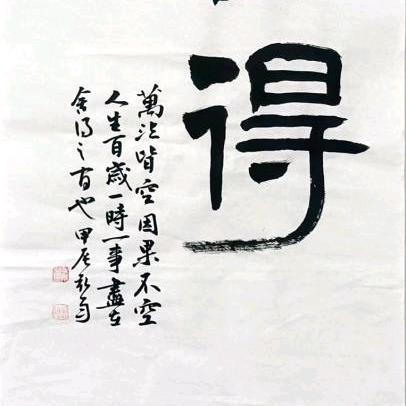 得
萬法皆空因果不空
人生百歲一時一事盡在
舍得之也甲辰